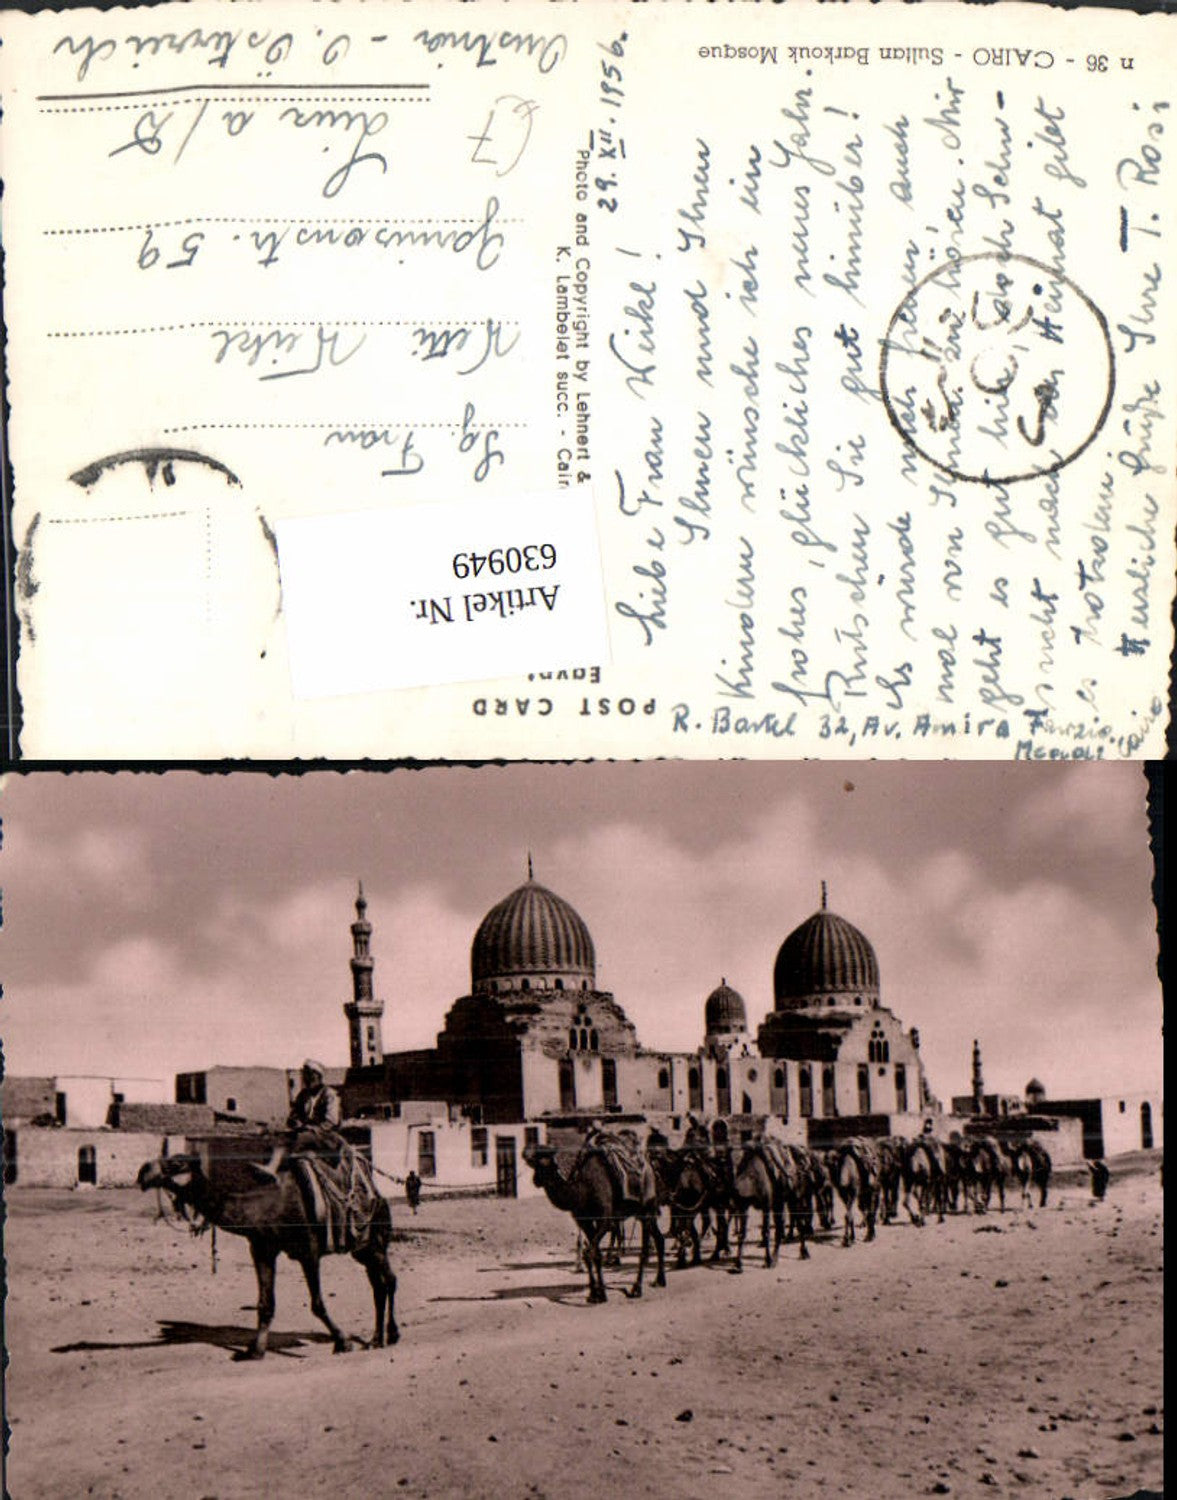 n 36 - CAIRO - Sultan Barkouk Mosque
POST CARD
Egypt
Photo and Copyright by Lehnert &
K. Lambelet succ. - Cair
Artikel Nr.
630949
29. XII. 1956.
Liebe Frau Weikl!
Ihnen und Ihren
Kindern wünsche ich ein
frohes, glückliches neues Jahr.
Rutschen Sie gut hinüber!
Es würde mich freuen, auch
mal von Ihnen zu hören. Mir
geht es gut hier, doch Sehn-
sucht nach der Heimat gibt
es trotzdem.
Herzliche Grüße Ihre T. Rosi
R. Bartel 32, Av. Amira
Cairo
Sg. Frau
Netti Weikl
Garnisonstr. 59
Linz a/D
Austria - O. Österreich